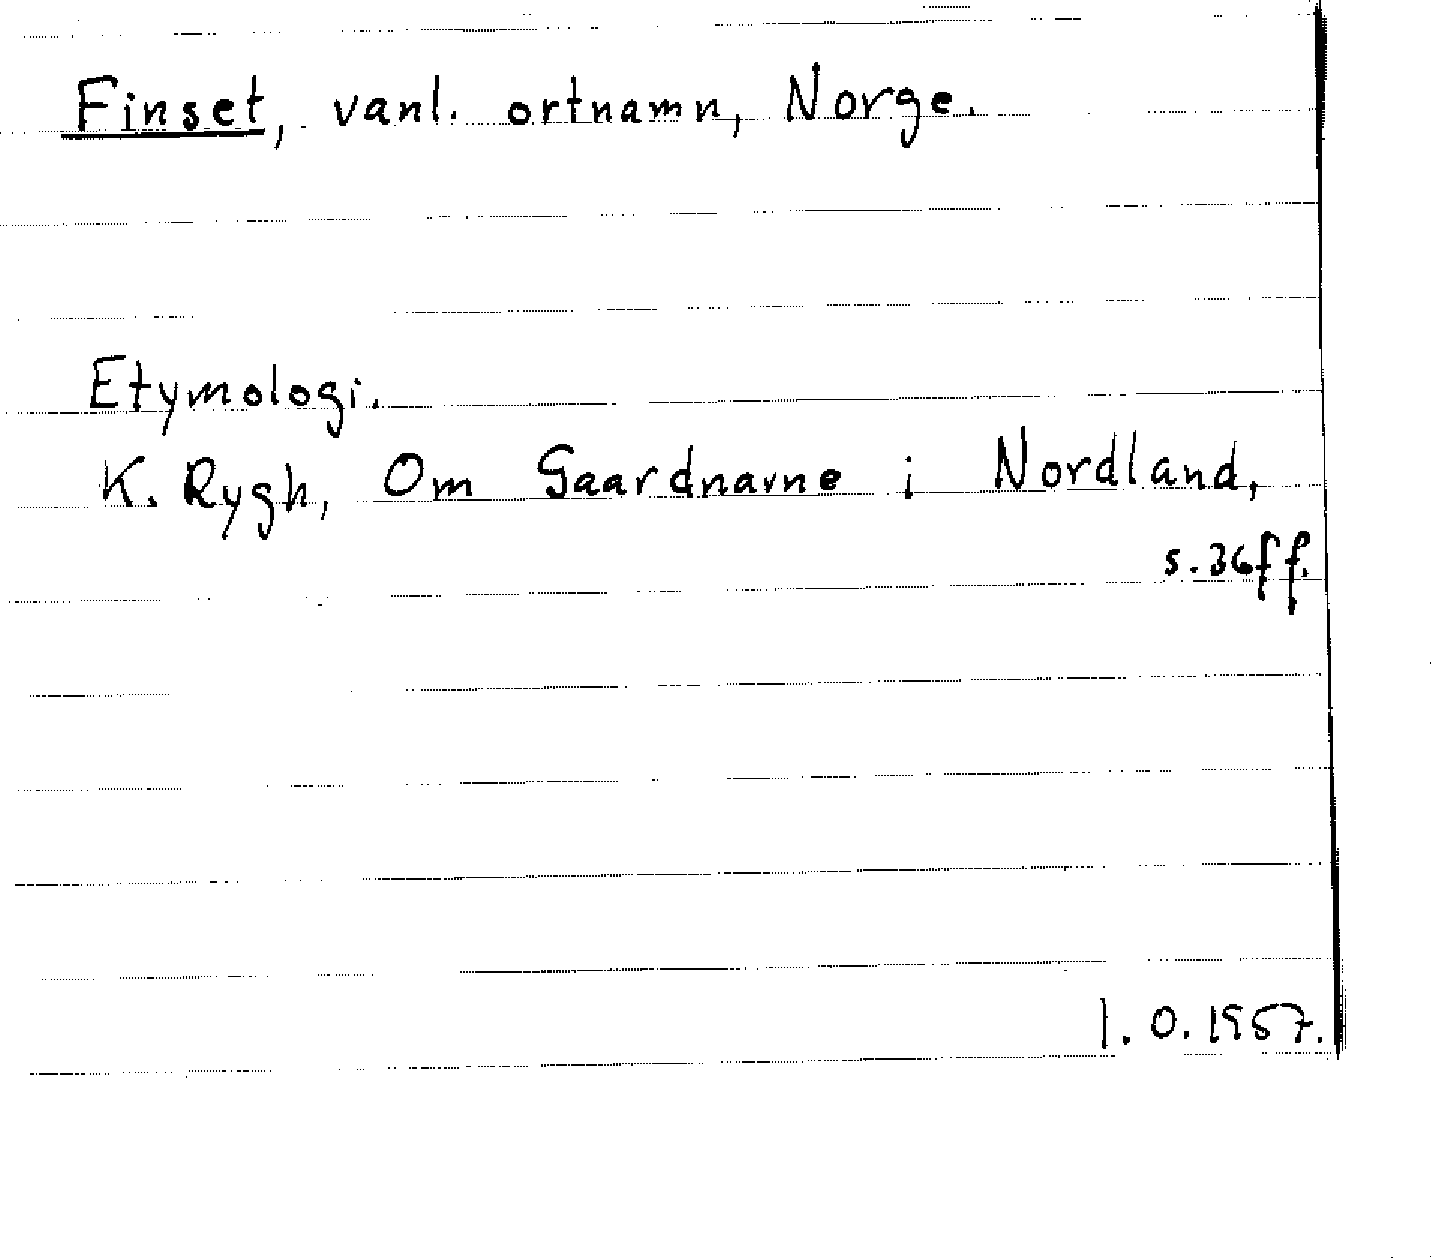 Finset, vanl. ortnamn, Norge.
Etymologi.
K. Rygh, Om Gaardnavne i Nordland,
s. 36ff.
I. O. 1957.